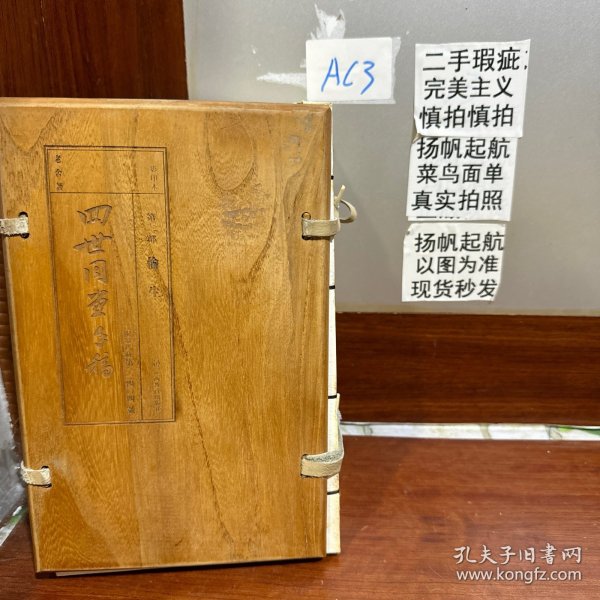 AC3
二手瑕疵
完美主义
慎拍慎拍
扬帆起航
菜鸟面单
真实拍照
扬帆起航
以图为准
现货秒发
老舍著
四世同堂手稿
第一部 偷生
孔夫子旧书网
www.kongfz.com